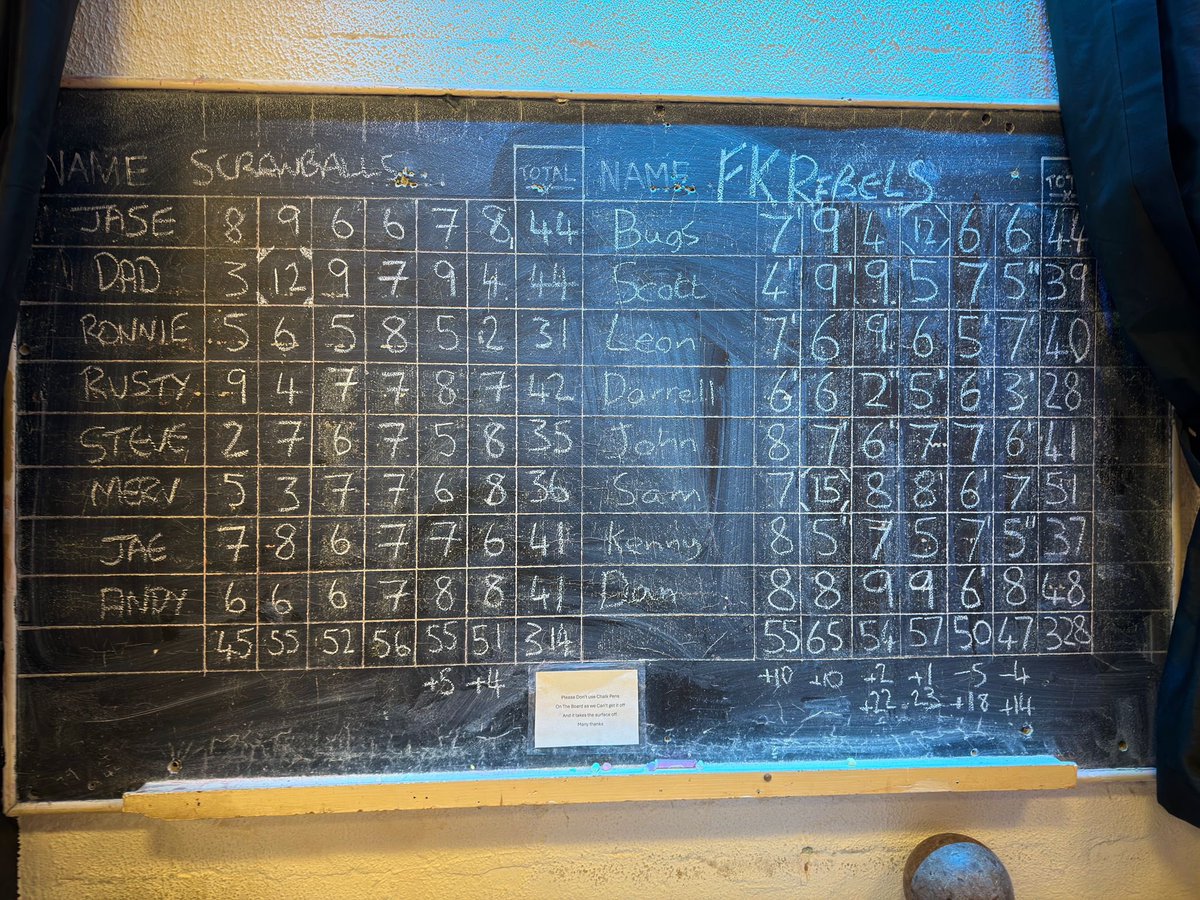 NAME SCREWBALLS TOTAL NAME FK REBELS TOT
JASE 8 9 6 6 7 8 44 Bugs 7 9 4 12 6 6 44
DAD 3 12 9 7 9 4 44 Scott 4 9 9 5 7 5 39
RONNIE 5 6 5 8 5 2 31 Leon 7 6 9 6 5 7 40
RUSTY 9 4 7 7 8 7 42 Darrell 6 6 2 5 6 3 28
STEVE 2 7 6 7 5 8 35 John 8 7 6 7 7 6 41
MERV 5 3 7 7 6 8 36 Sam 7 15 8 8 6 7 51
JAE 7 8 6 7 7 6 41 Kenny 8 5 7 5 7 5 37
ANDY 6 6 6 7 8 8 41 Dan 8 8 9 9 6 8 48
45 55 52 56 55 51 314 55 65 54 57 50 47 328
+5 +4 +10 +10 +2 +1 -5 -4
+22 23 +18 +14
Please Don't use Chalk Pens
On The Board as we Can't get it off
And it takes the surface off
Many thanks